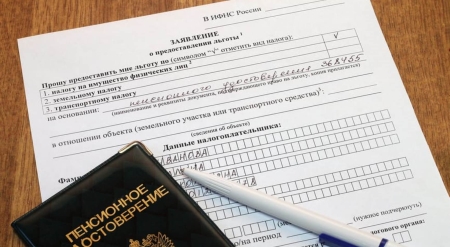 В ИФНС России
ЗАЯВЛЕНИЕ
о предоставлении льготы
Прошу предоставить мне льготу по (символом «√» отметить вид налога):
1. налогу на имущество физических лиц √
2. земельному налогу
3. транспортному налогу
на основании: пенсионного удостоверения 368455
(наименования и реквизиты документа, подтверждающего право на льготу, копия прилагается)
в отношении объекта (земельного участка или транспортного средства)
(сведения об объекте)
Данные налогоплательщика:
ИВАНОВА
ПЕНСИОННОЕ
УДОСТОВЕРЕНИЕ
(нужное подчеркнуть)
на период
налогового органа